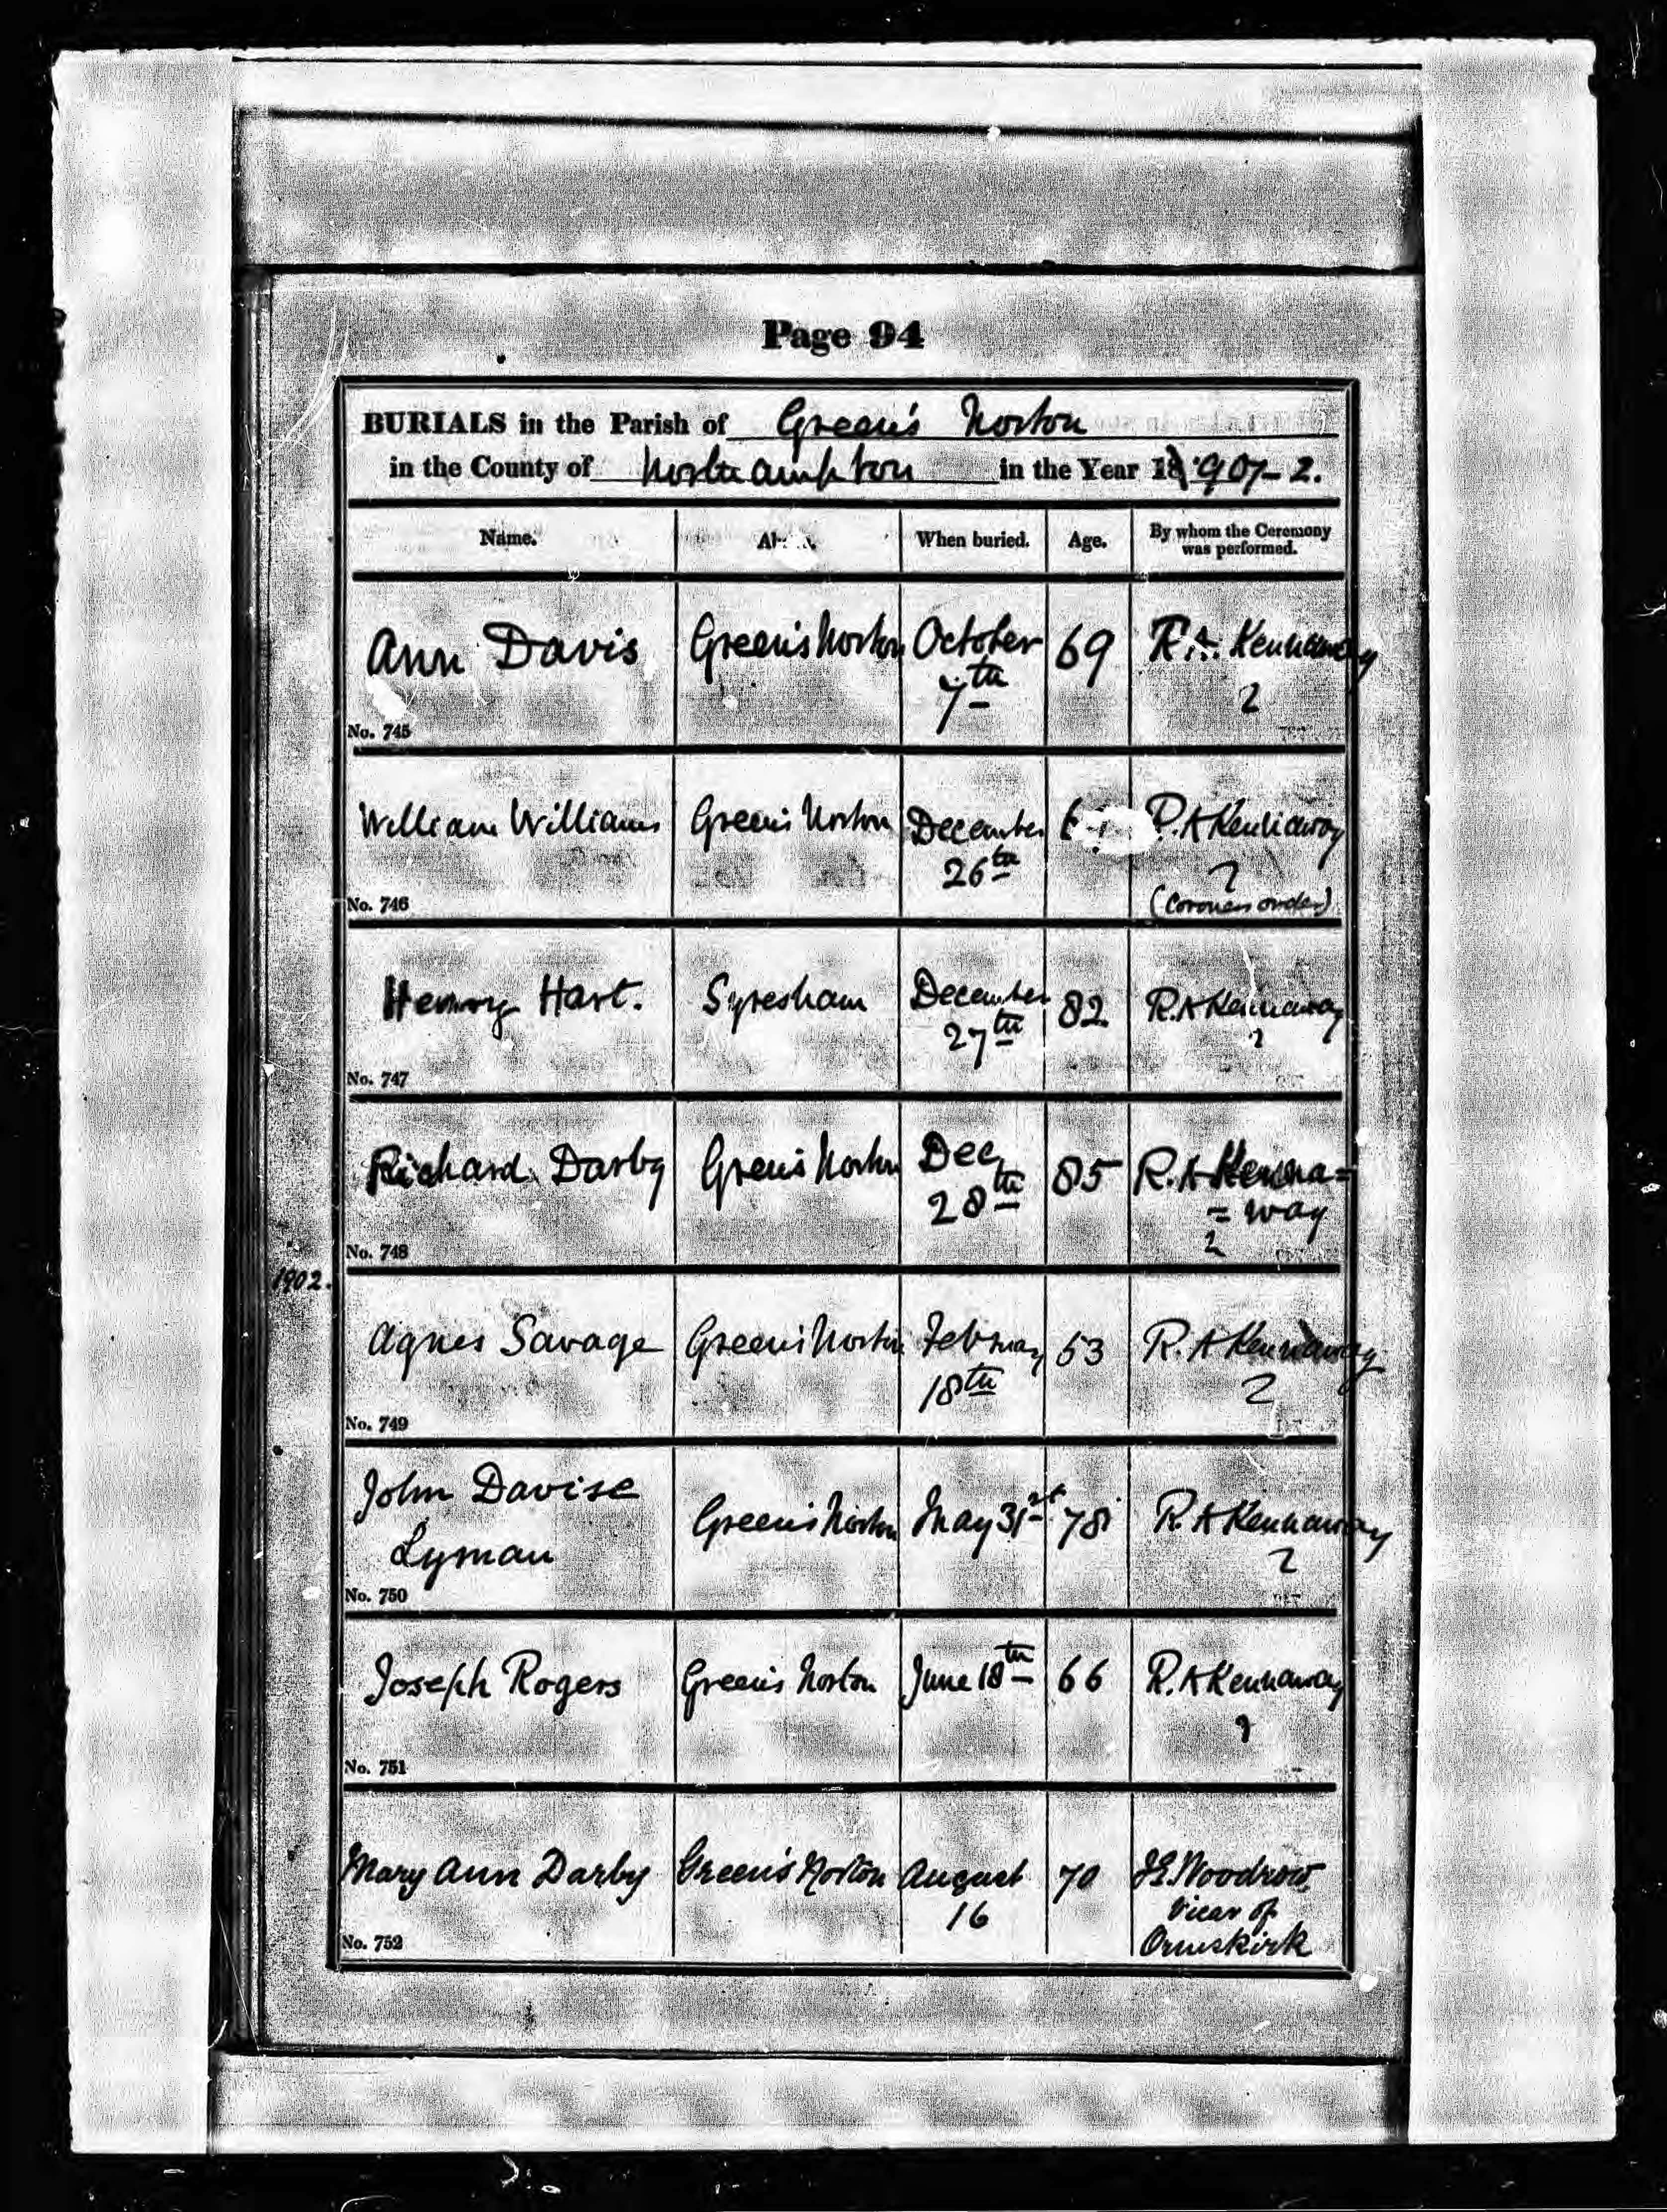 Page 94
BURIALS in the Parish of Green's Norton
in the County of Northampton in the Year 18 1901-2.
Name. When buried. Age. By whom the Ceremony was performed.
Ann Davis Green's Norton October 7th 69 R. A. Kennaway
No. 745
William Williams Green's Norton December 26th R. A Kennaway
(Coroners order)
No. 746
Henry Hart. Syresham December 27th 82 R. A Kennaway
No. 747
Richard Darby Green's Norton Dec 28th 85 R. A Kenna=
= way
No. 748
1902.
Agnes Savage Green's Norton February 18th 53 R. A Kennaway
No. 749
John Davise
Lyman Green's Norton May 31st 78 R. A Kennaway
No. 750
Joseph Rogers Green's Norton June 18th 66 R. A Kennaway
No. 751
Mary Ann Darby Green's Norton August 16 70 J E. Woodrow
Vicar of
Ormskirk
No. 752